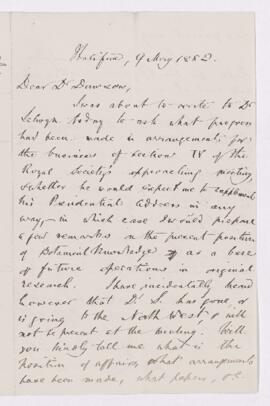 Halifax, 9 May 1882.
Dear Dr Dawson,
I was about to write to Dr
Selwyn today to ask what progress
had been made in arrangements for
the business of Section IV of the
Royal Society's approaching meeting,
& whether he would expect me to supplement
his Presidential Address in any
way, – in which case I would prepare
a few remarks on the present position
of Botanical Knowledge as a base
of future operations in original
research. I have incidentally heard
however that Dr S. has gone, or
is going to the North West, & will
not be present at the meeting. Will
you kindly tell me what is the
Position of affairs, & what arrangements
have been made, what papers, &c.